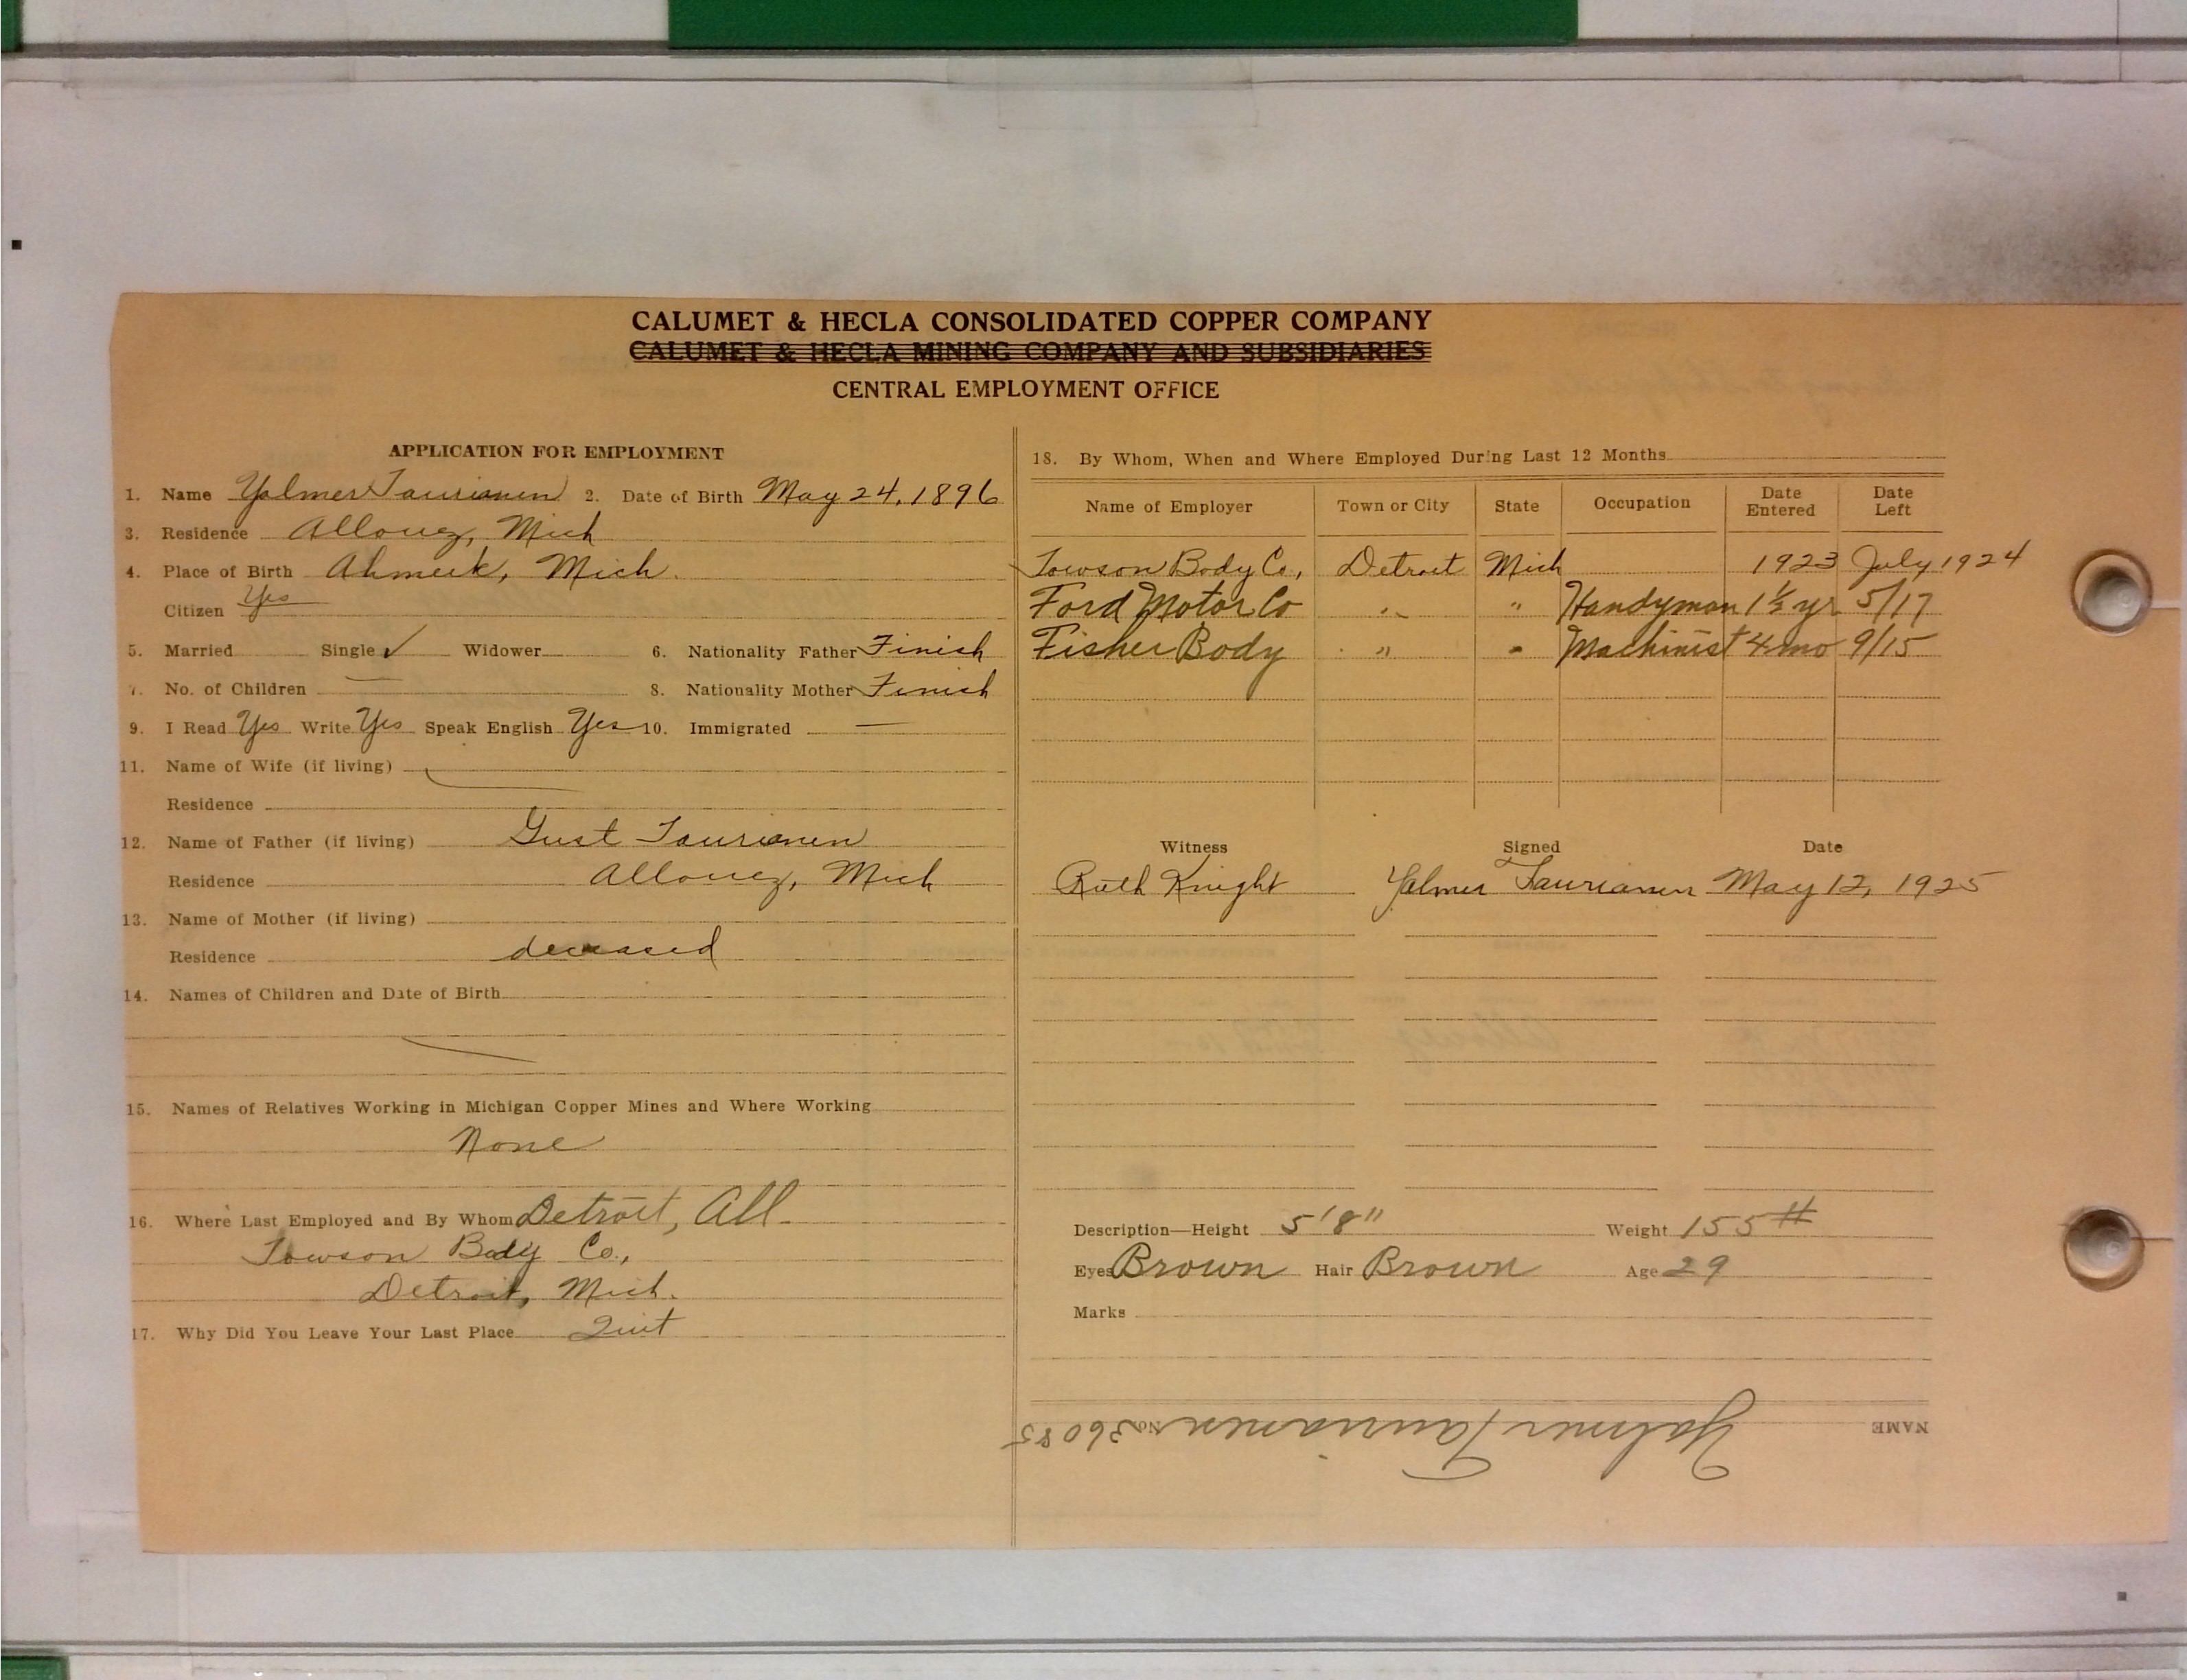 CALUMET & HECLA CONSOLIDATED COPPER COMPANY
CALUMET & HECLA MINING COMPANY AND SUBSIDIARIES
CENTRAL EMPLOYMENT OFFICE
APPLICATION FOR EMPLOYMENT
1. Name Yalmer Taurianen 2. Date of Birth May 24, 1896
3. Residence Allouez, Mich
4. Place of Birth Ahmeek, Mich.
Citizen Yes
5. Married Single ✓ Widower 6. Nationality Father Finish
7. No. of Children — 8. Nationality Mother Finish
9. I Read Yes Write Yes Speak English Yes 10. Immigrated —
11. Name of Wife (if living)
Residence
12. Name of Father (if living) Gust Taurianen
Residence Allouez, Mich
13. Name of Mother (if living)
Residence deceased
14. Names of Children and Date of Birth
15. Names of Relatives Working in Michigan Copper Mines and Where Working
None
16. Where Last Employed and By Whom Detroit, All
Towson Body Co.,
Detroit, Mich.
17. Why Did You Leave Your Last Place Quit
18. By Whom, When and Where Employed During Last 12 Months
Name of Employer Town or City State Occupation Date Entered Date Left
Towson Body Co., Detroit Mich 1923 July 1924
Ford Motor Co " " Handyman 1½ yr 5/17
Fisher Body " " Machinist 4 mo 9/15
Witness Signed Date
Ruth Knight Yalmer Taurianen May 12, 1925
Description—Height 5'8" Weight 155#
Eyes Brown Hair Brown Age 29
Marks
NAME Yalmer Taurianen No. 36085